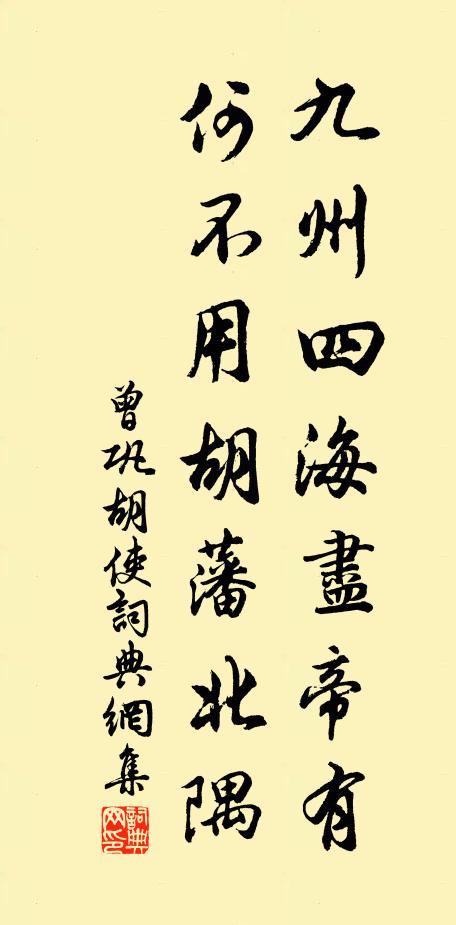 九州四海盡帝有
何不用胡藩北隅
曾巩胡使詞典網集
詞典网印